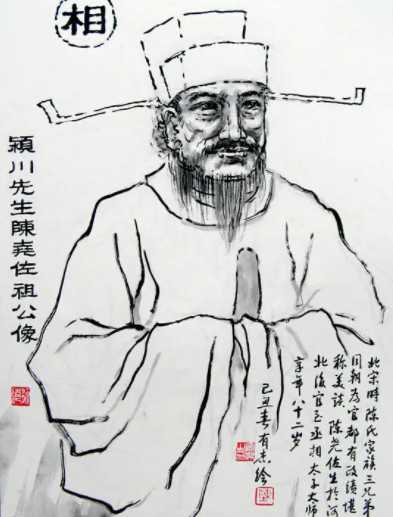 相
穎川先生陳堯佐祖公像
北宋時陳氏家族三兄弟
同朝为官都有政績堪
称美談 陳尧佐生於河
北後官至丞相太子太师
享年八十二岁
己丑春有志绘